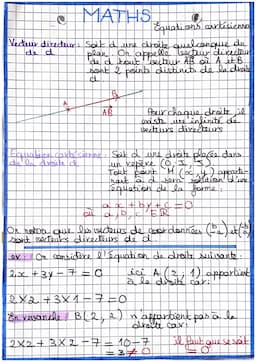 MATHS
Equations cartésiennes
Vecteur directeur de d : Soit d une droite quelconque du
plan. On appelle vecteur directeur
de d tout vecteur AB où A et B
sont 2 points distincts de la droite
d.
A
B
AB
Pour chaque droite il
existe une infinité de
vecteurs directeurs
Equation cartésienne de la droite d : Soit d une droite placée dans
un repère (O, I, J).
Tout point M (x, y) appartenant
à d sera solution d'une
équation de la forme :
ax + by + c = 0
où a, b, c ∈ ℝ
On notera que les vecteurs de coordonnées (b -a) et (-b a)
sont vecteurs directeurs de d.
ex : On considère l'équation de droite suivante :
2x + 3y - 7 = 0 ici A (2, 1) appartient
à la droite car :
2×2 + 3×1 - 7 = 0
En revanche B (2, 2) n'appartient pas à la
droite car :
2×2 + 3×2 - 7 = 10 - 7
= 3 ≠ 0
il faut que ce soit
= 0